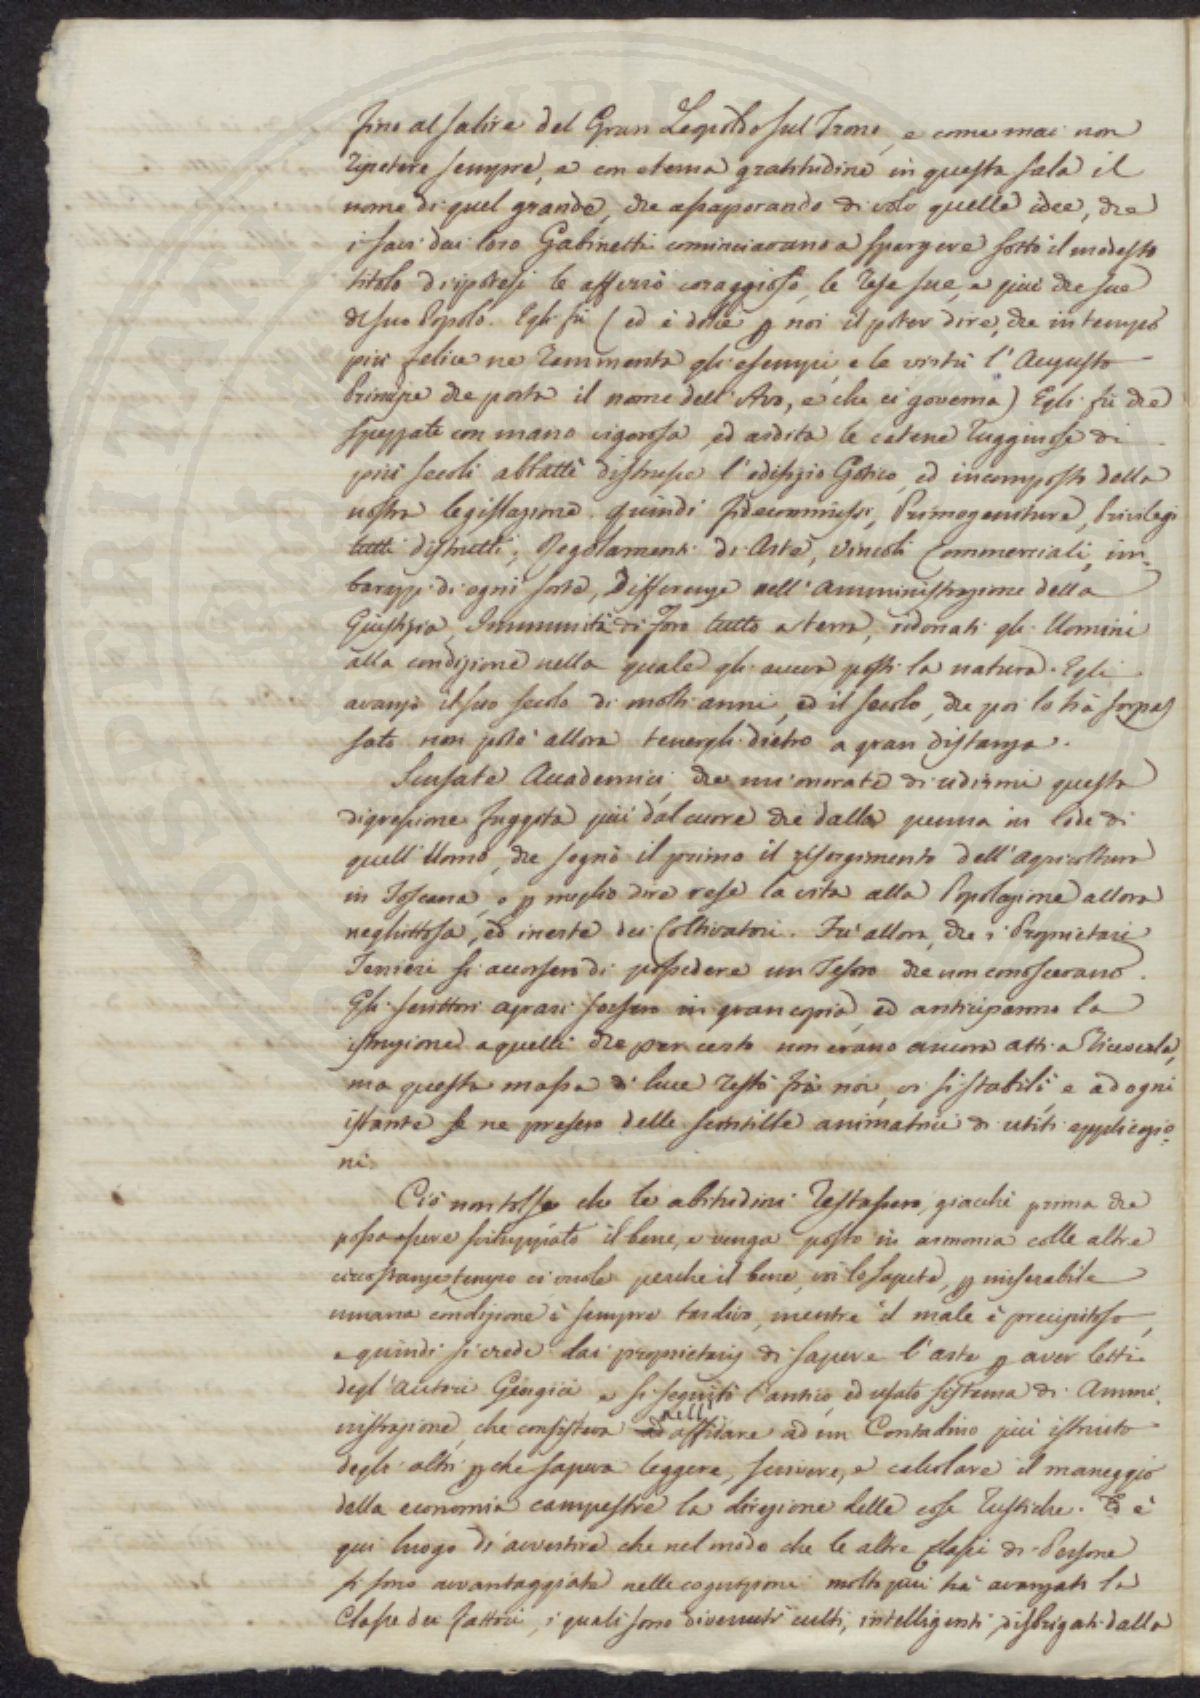 fino al salire del Gran Leopoldo sul Trono, e come mai non
ripetere sempre, e con eterna gratitudine in questa sala il
nome di quel grande, che assaporando di volo quelle idee, che
i savi dai loro Gabinetti cominciavano a spargere sotto il modesto
titolo d'ipotesi le afferrò coraggioso, le rese sue, e più che sue
del suo Popolo. Egli fù (ed è dolce p noi il poter dire, che in tempo
più felice ne rammenta gli esempi, e le virtù l'Augusto
Principe che porta il nome dell'Avo, e che ci governa) Egli fù che
spezzate con mano vigorosa, ed ardita le catene rugginose di
più secoli abbattè distrusse l'edifizio Gotico, ed incomposto della
nostra legislazione. quindi fidecommissi, Primogeniture, Privilegi
tutti distrutti, Regolamenti di Arte, vincoli Commerciali, im-
barazzi di ogni sorta, Differenze nell'amministrazione della
Giustizia, Immunità di Foro tutto a terra, ridonati gli Uomini
alla condizione nella quale gli aveva posti la natura. Egli
avanzò il suo secolo di molti anni, ed il secolo, che poi lo hà sorpas
sato non potè allora tenergli dietro a gran distanza.
Scusate Accademici, che mi onorate di udirmi questa
digressione fuggita più dal cuore che dalla penna in lode di
quell'Uomo, che segnò il primo il risorgimento dell'agricoltura
in Toscana, o p meglio dire rese la vita alla Popolazione allora
neghittosa, ed inerte dei Coltivatori. Fu allora, che i Proprietari
Terrieri si accorsero di possedere un Tesoro che non conoscevano.
Gli scrittori agrari sorsero in gran copia, ed anticiparono la
istruzione a quelli che per certo non erano ancora atti a riceverla,
ma questa massa di luce restò frà noi, vi si stabilì, e ad ogni
istante se ne presero delle scintille animatrici di utili applicazio
ni.
Ciò non tolse che le abitudini restassero, giacchè prima che
possa essere sviluppato il bene, e venga posto in armonia colle altre
circostanze, tempo ci vuole perchè il bene, voi lo sapete, p miserabile
umana condizione è sempre tardivo, mentre il male è precipitoso,
e quindi si credè dai proprietarj di sapere l'arte p aver letti
degl'autori Georgici, e si seguitò l'antico, ed usato sistema di Ammi
nistrazione, che consisteva nell'
affidare ad un Contadino più istruito
degli altri pchè sapeva leggere, scrivere, e calcolare il maneggio
della economia campestre la direzione delle cose rustiche. Ed è
qui luogo di avvertire che nel modo che le altre classi di Persone
si sono avvantaggiate nelle cognizioni molto più hà avanzato la
Classe dei Fattori, i quali sono divenuti culti, intelligenti, disbrigati dalla